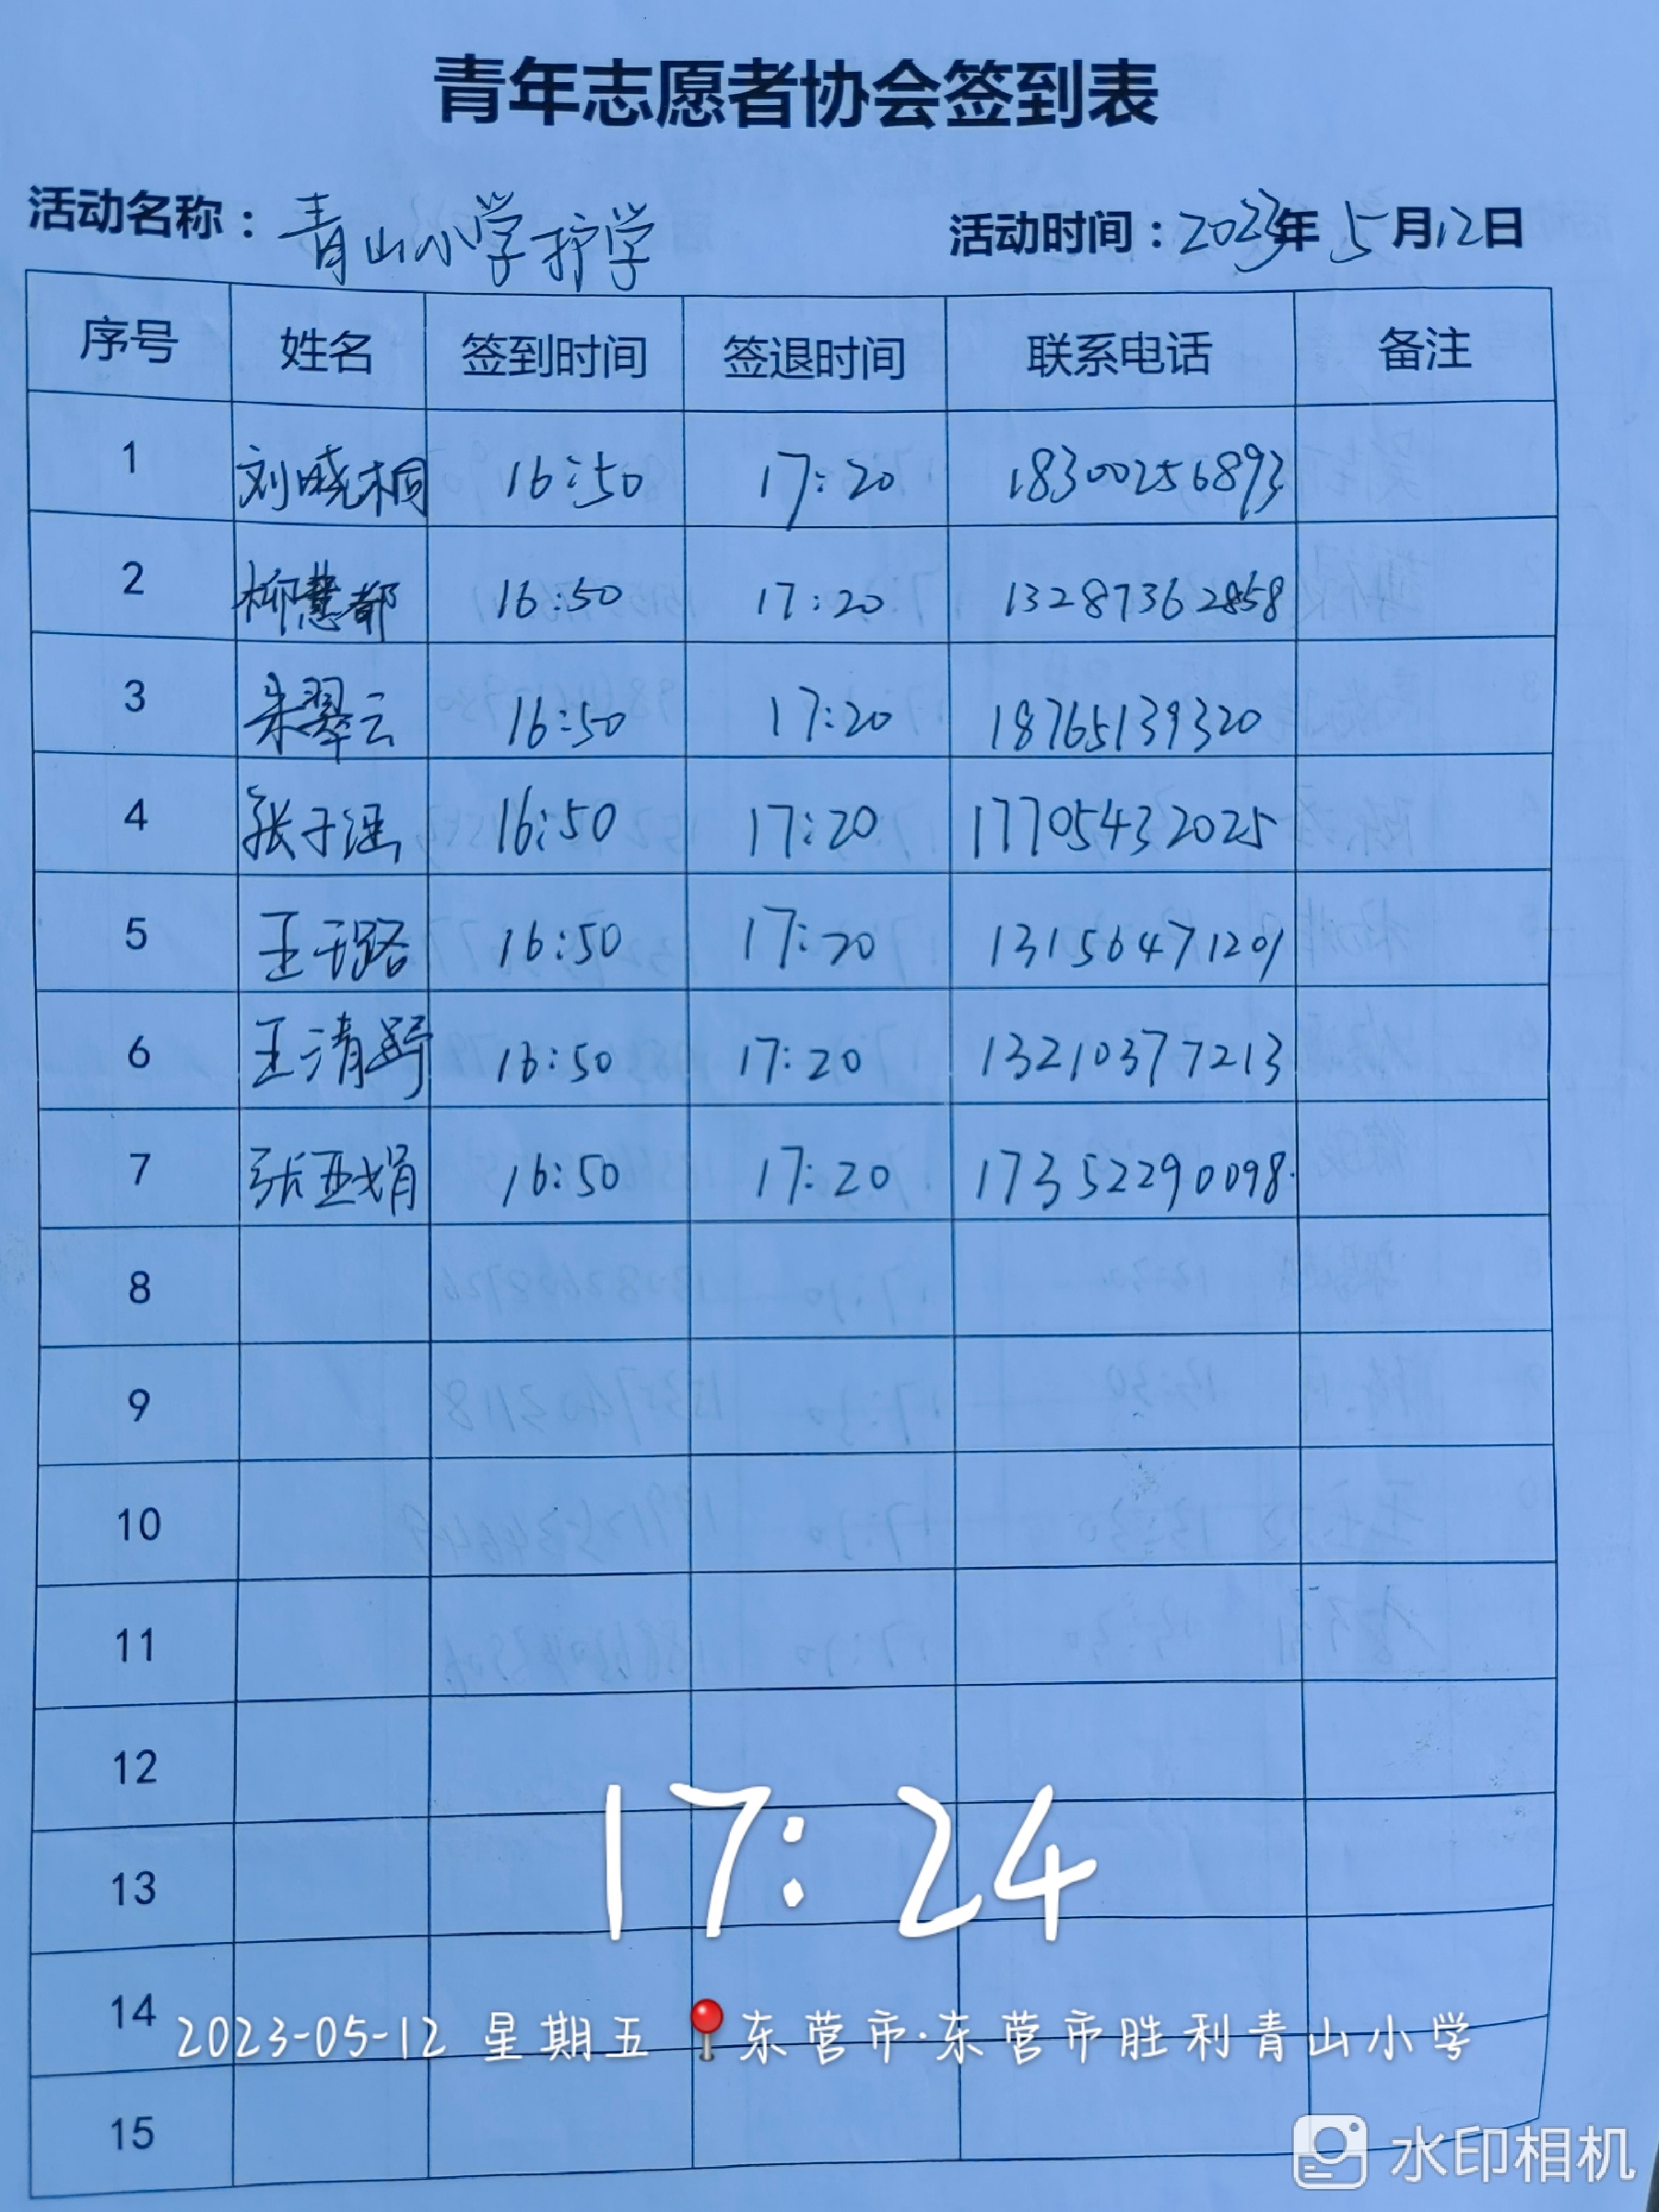 青年志愿者协会签到表
活动名称：青山小学护学 活动时间：2023年5月12日
序号 姓名 签到时间 签退时间 联系电话 备注
1 刘晓桐 16:50 17:20 18300256893
2 柳慧都 16:50 17:20 13287362858
3 朱翠云 16:50 17:20 18765139320
4 张子涵 16:50 17:20 17705432025
5 王于路 16:50 17:20 13156471201
6 王清 16:50 17:20 13210377213
7 张亚娟 16:50 17:20 17352290098
8
9
10
11
12
17:24
13
14
2023-05-12 星期五 东营市·东营市胜利青山小学
15
水印相机